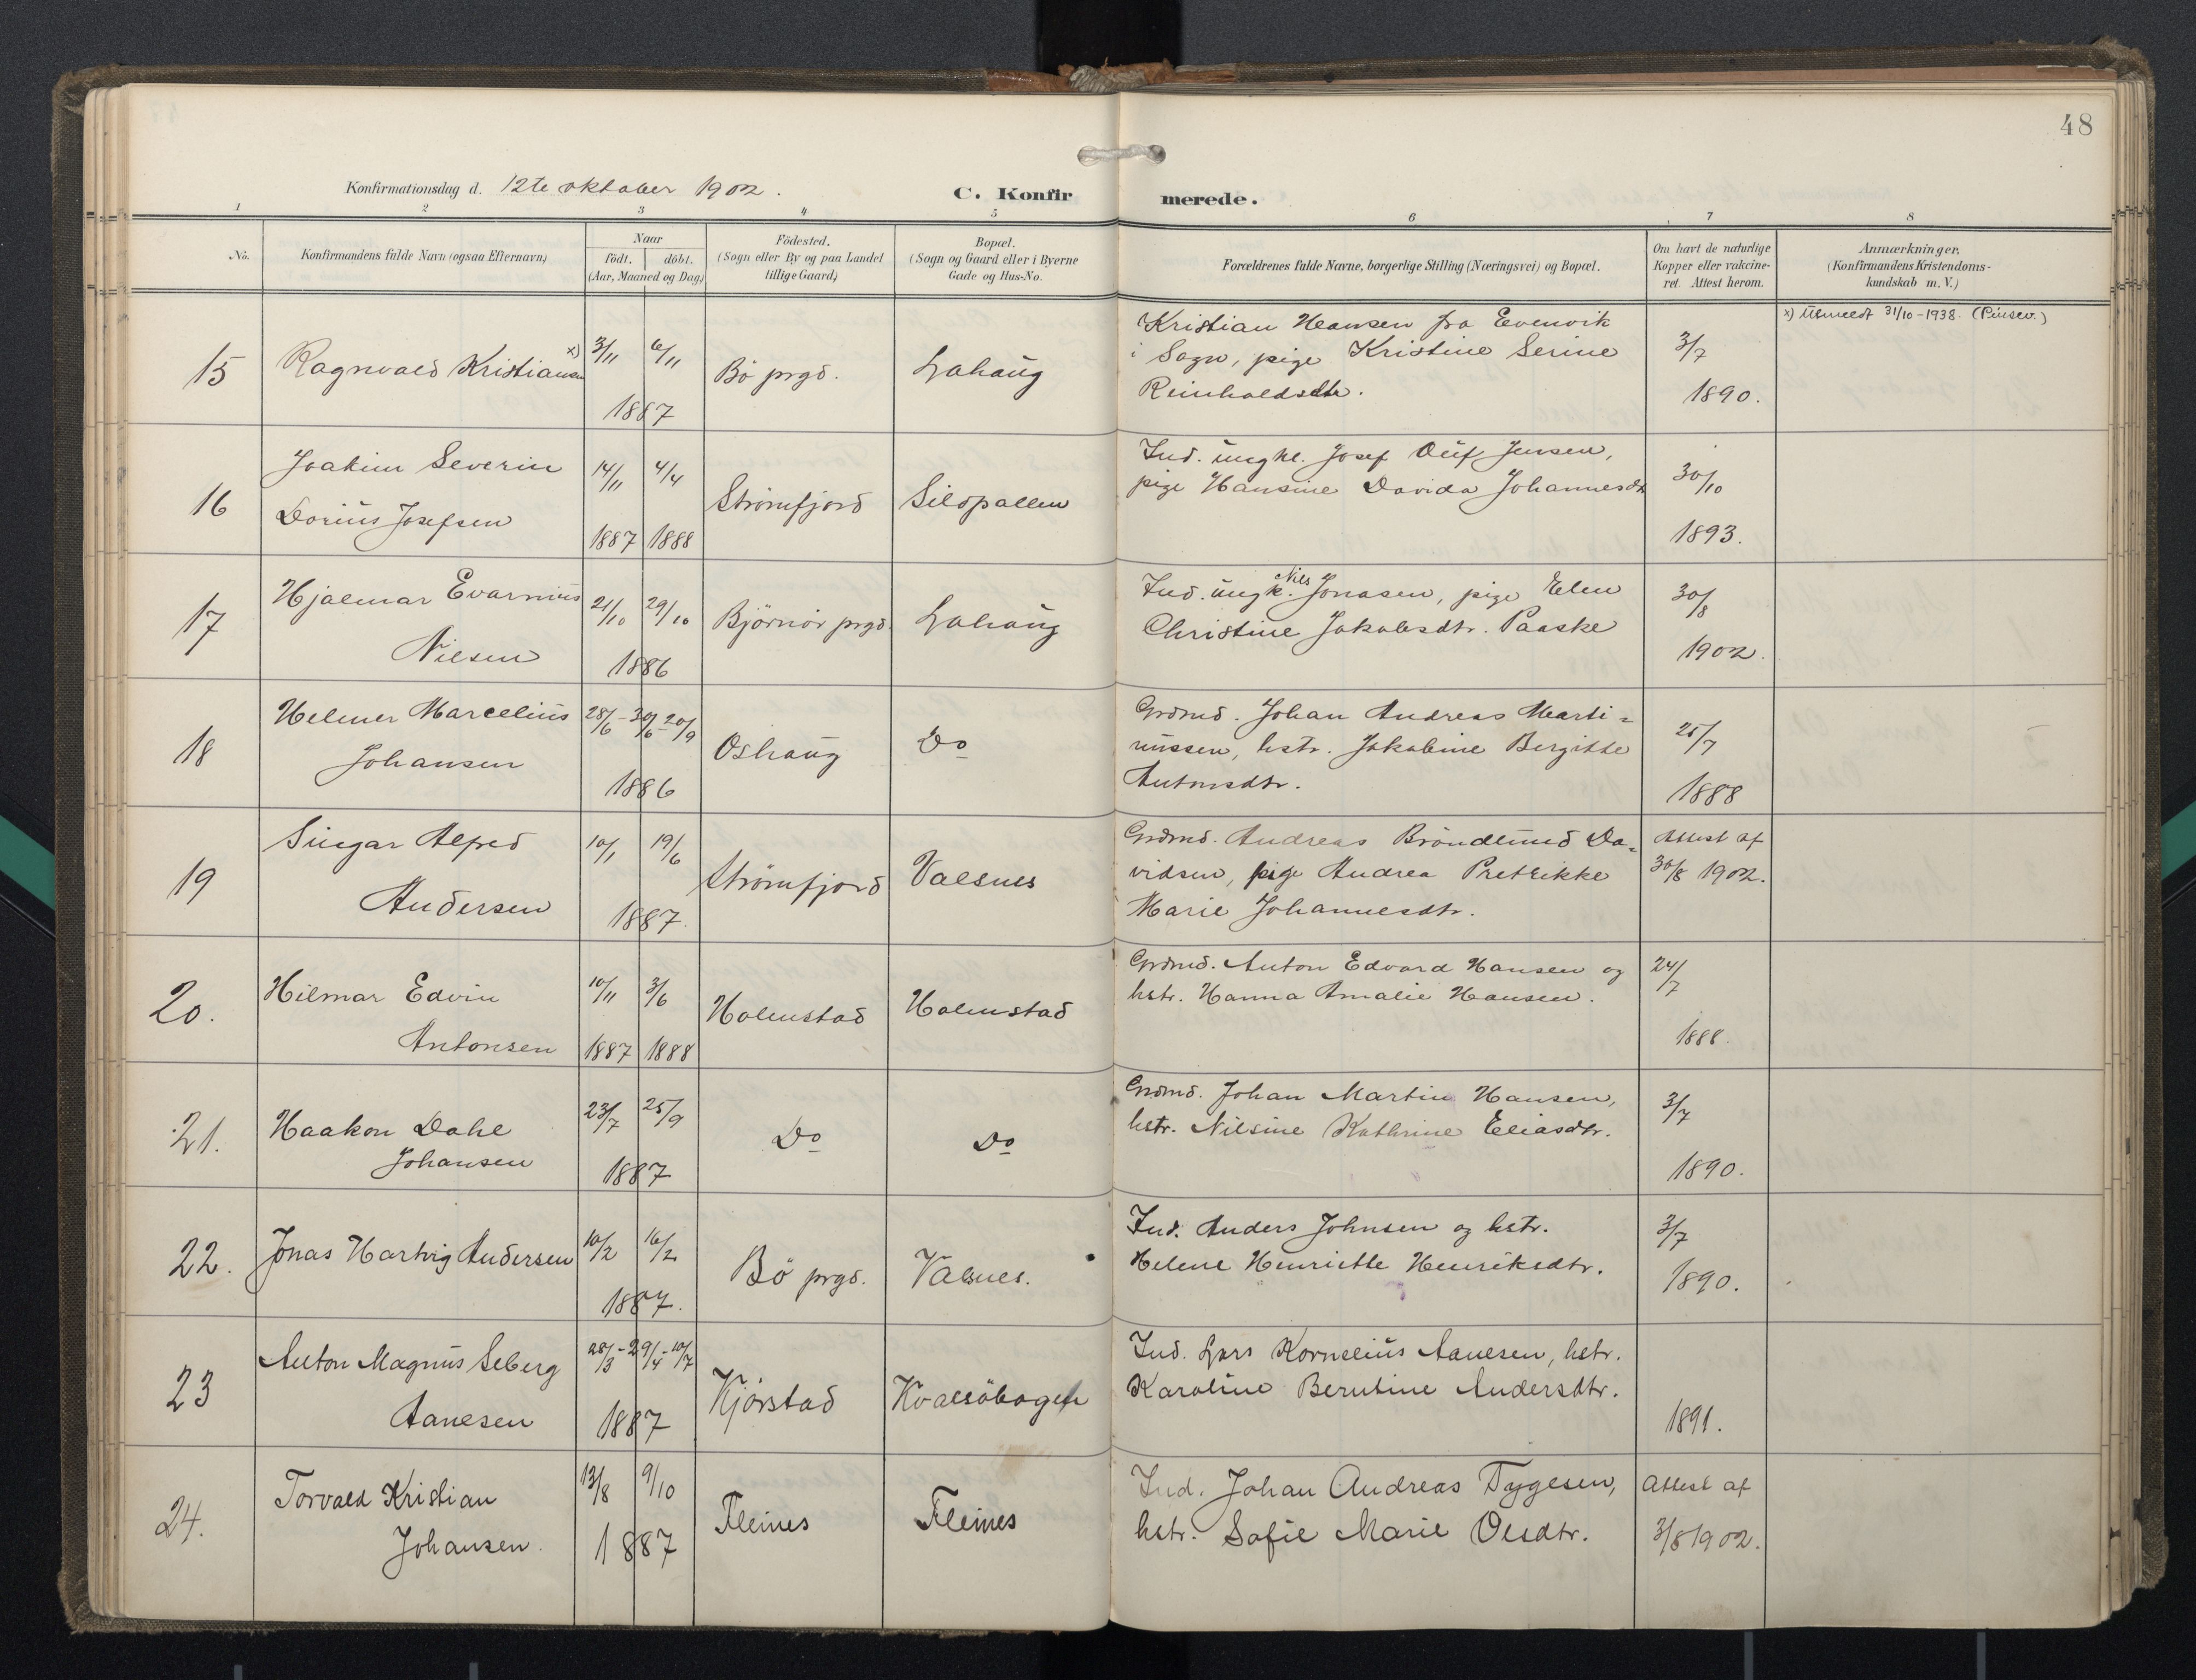 48
Konfirmationsdag d. 12te oktober 1902.
C. Konfir merede.
1 2 3 4 5 6 7 8
No.
Konfirmandens fulde Navn (ogsaa Efternavn)
Naar
födt. döbt.
(Aar, Maaned og Dag)
Födested.
(Sogn eller By og paa Landet
tillige Gaard)
Bopæl.
(Sogn og Gaard eller i Byerne
Gade og Hus-No.
Forældrenes fulde Navne, borgerlige Stilling (Næringsvei) og Bopæl.
Om havt de naturlige
Kopper eller vakcine-
ret. Attest herom.
Anmærkninger.
(Konfirmandens Kristendoms-
kundskab m. V.)
15
Ragnvald Kristiansen x)
3/11 6/11
1887
Bö prgd.
Lahaug
Kristian Hansen fra Evenvik
i Sogn, pige Kristine Serine
Reinholdsdtr.
3/7
1890.
x) Utmeldt 31/10-1938. (Pinsev.)
16
Joakim Severin
Dorius Josefsen
14/11 4/4
1887 1888
Strömfjord
Sildpallen
Ind. ungkl. Josef Oluf Jensen,
pige Hansine Davida Johannesdtr
30/10
1893.
17
Hjalmar Evarnius
Nilsen
21/10 29/10
1886
Björnör prgd.
Lahaug
Ind. ungk. Nils Jonasen, pige Elen
Christine Jakobsdtr. Paaske
30/8
1902.
18
Helmer Marcelius
Johansen
28/6 - 30/6 - 20/9
1886
Oshaug
Do
Grdmd. Johan Andreas Marti=
nussen, hstr. Jakobine Bergitte
Antonsdtr.
25/7
1888
19
Singar Alfred
Andersen
10/1 19/6
1887.
Strömfjord
Valsnes
Grdmd. Andreas Bröndlund Da=
vidsen, pige Andrea Pretrikke
Marie Johannesdtr.
Attest af
30/8 1902.
20.
Hilmar Edvin
Antonsen
10/11 3/6
1887 1888
Holmstad
Holmstad
Grdmd. Anton Edvard Hansen og
hstr. Hanna Amalie Hansen.
24/7
1888.
21.
Haakon Dahl
Johansen
23/7 25/9
1887
Do
Do
Grdmd. Johan Martin Hansen,
hstr. Nilsine Kathrine Eliasdtr.
3/7
1890.
22.
Jonas Hartvig Andersen
10/2 16/2
1887.
Bö prgd.
Valsnes.
Ind. Anders Johnsen og hstr.
Helene Henriette Henriksdtr.
3/7
1890.
23
Anton Magnus Seberg
Aanesen
28/3 - 29/4 - 10/7
1887
Kjörstad
Kvalsöbogen
Ind. Lars Kornelius Aanesen, hstr.
Karoline Berntine Andersdtr.
1891.
24.
Torvald Kristian
Johansen.
13/8 9/10
1887
Fleines
Fleines
Ind. Johan Andreas Tygesen,
hstr. Sofie Marie Olsdtr.
Attest af
3/8 1902.